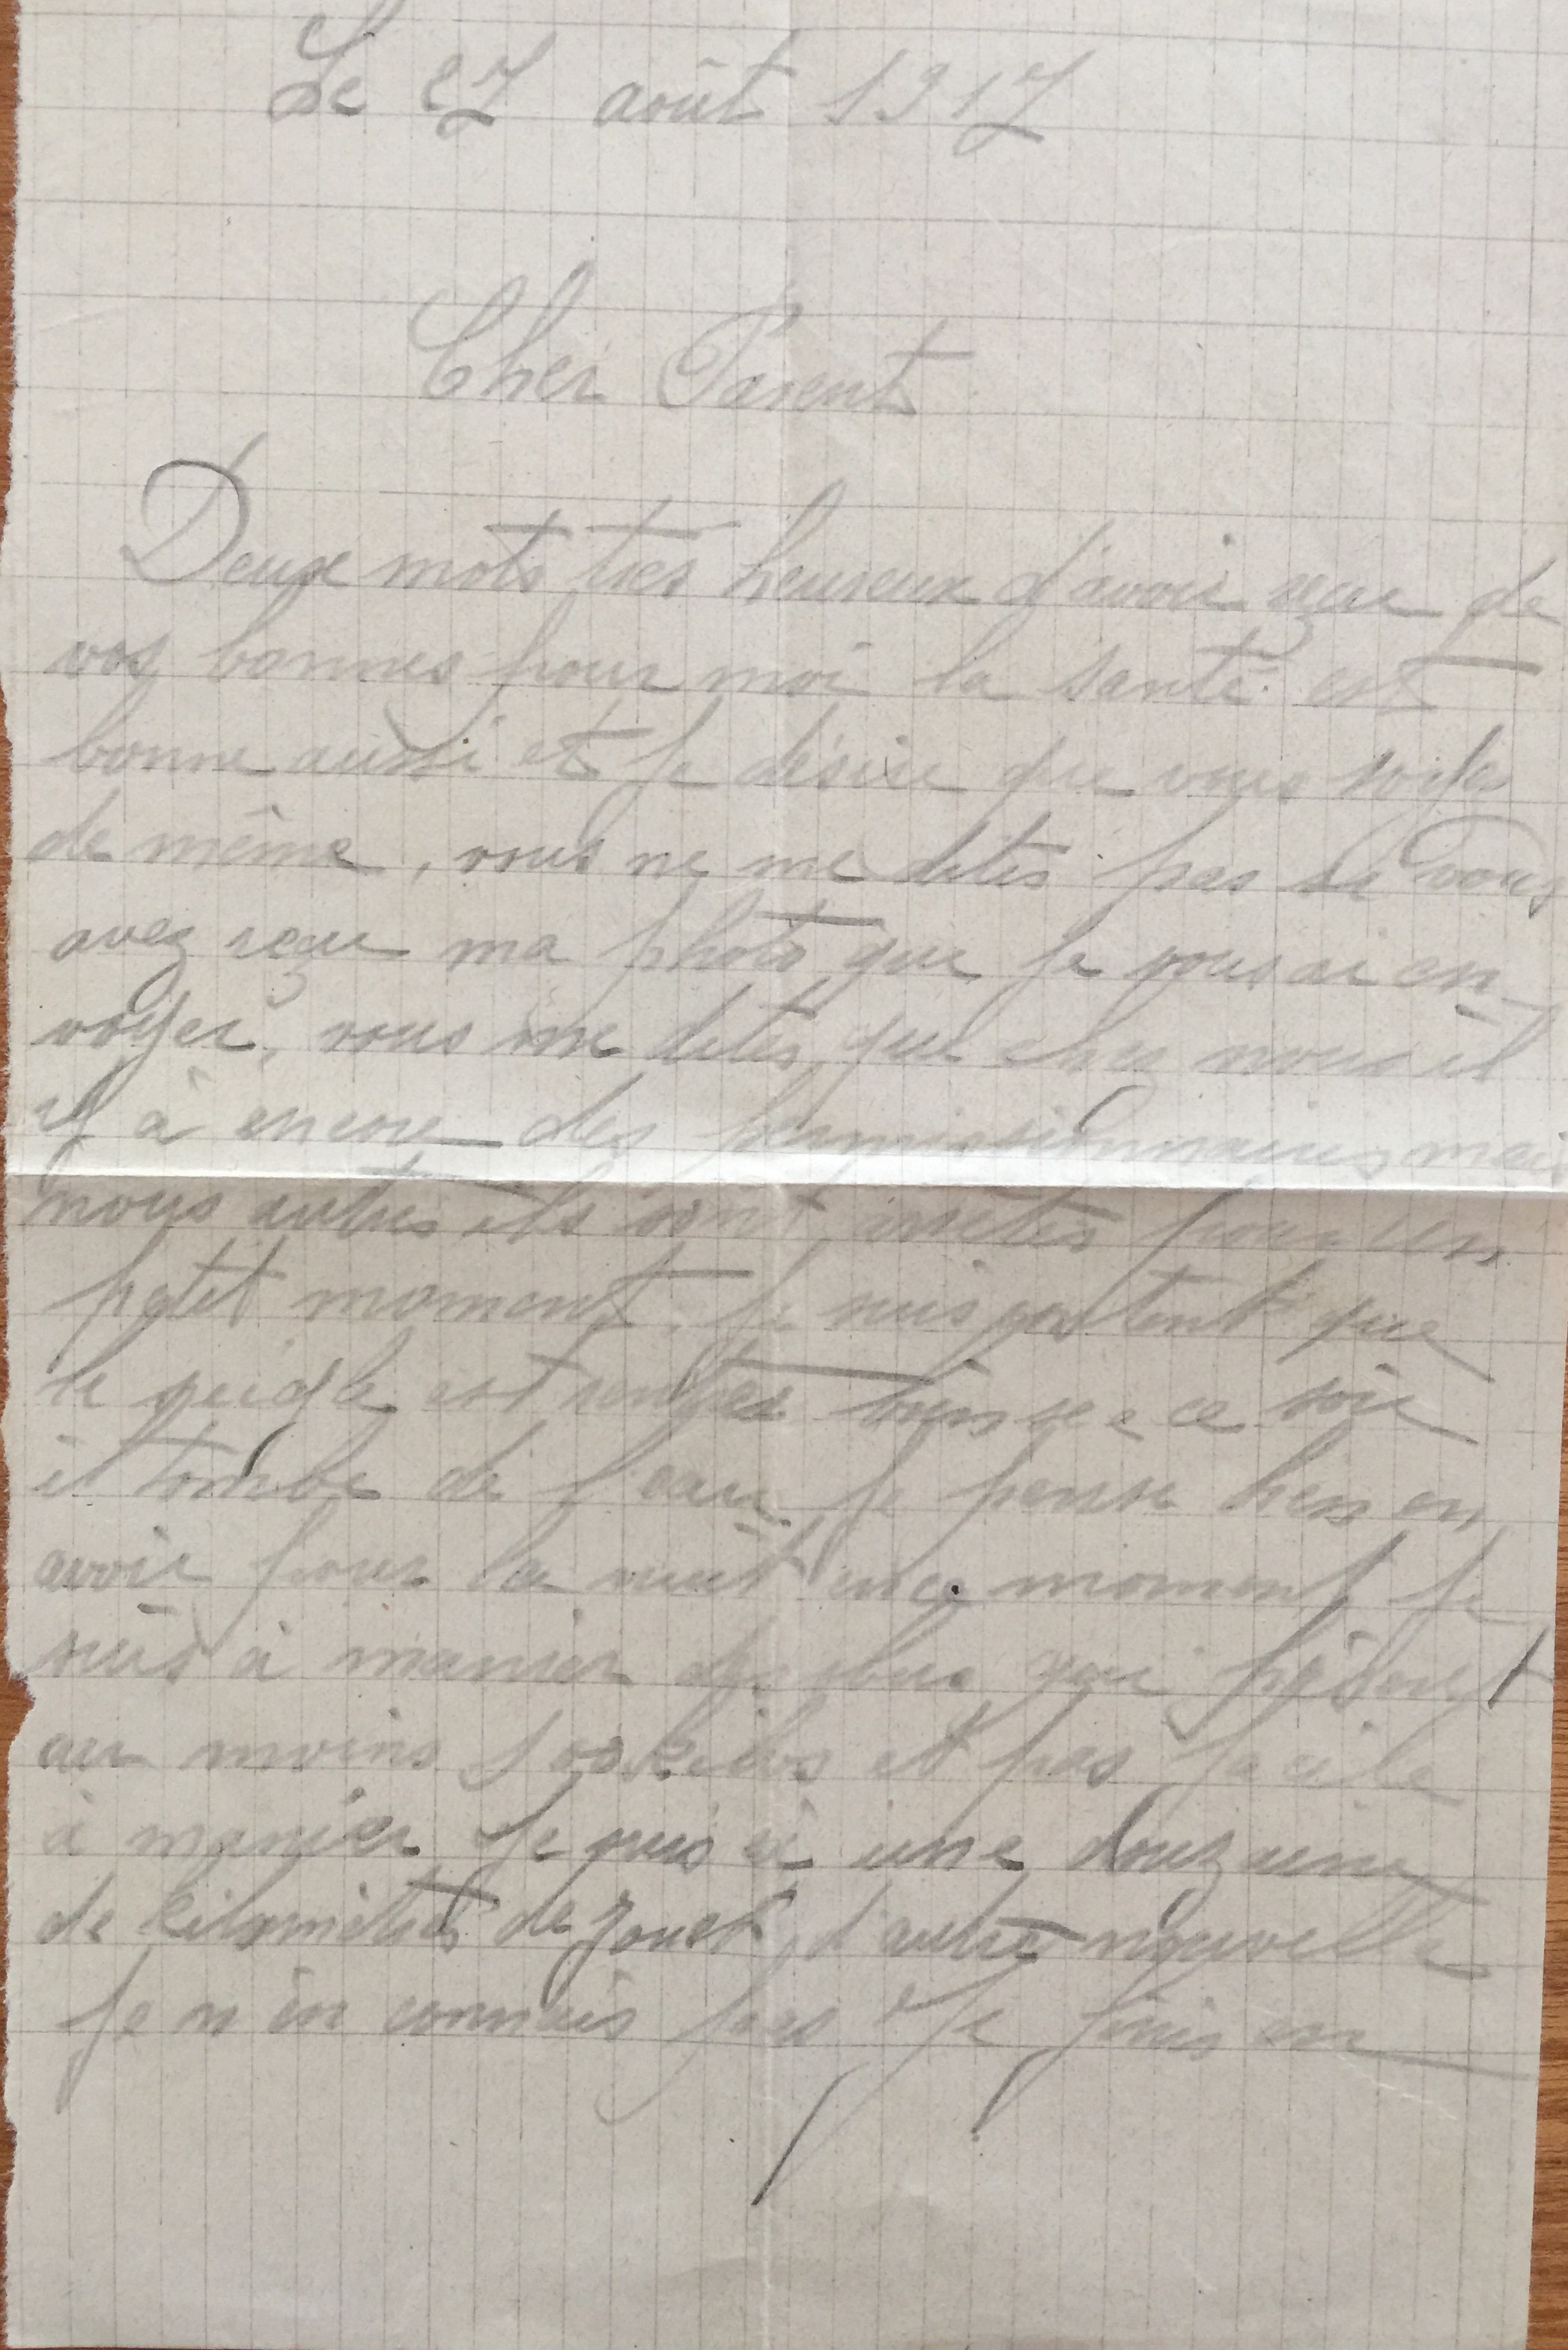 Le 27 août 1917
Cher Parent
Deux mots tres heureux d'avoir reçu de
vos bonnes pour moi la santé est
bonne aussi et je désire que vous soyes
de même, vous ne me dites pas si vous
avez reçu ma photo que je vous ai en
voyer, vous me dites que chez nous il
y à encore des permissionnaires mais
nous autres ils sont pour un
petit moment. Je suis contents que
le seigle est ce soir
il tombe de l'eau je pense bien en
avoir pour la nuit en ce moment je
suis à manier des obus que pèsent
au moins 100 kilos et pas facile
à manier Je suis à une douzaine
de kilomètres de d'autre nouvelle
je n'en connais pas Je finis en